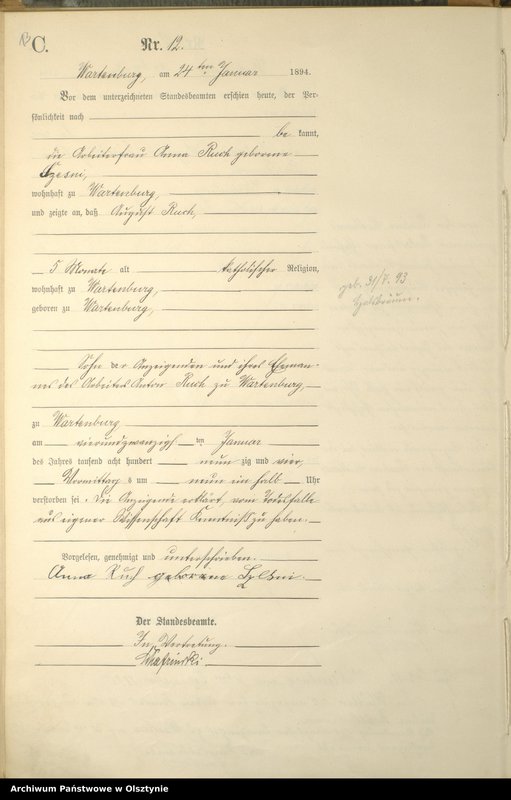 C.
Nr. 12.
Wartenburg, am 24ten Januar 1894.
Vor dem unterzeichneten Standesbeamten erschien heute, der Per-
sönlichkeit nach
be kannt,
die Arbeiterfrau Anna Ruch geborene
Czesni,
wohnhaft zu Wartenburg,
und zeigte an, daß August Ruch,
5 Monate alt katholischer Religion,
wohnhaft zu Wartenburg,
geboren zu Wartenburg,
Sohn der Anzeigenden und ihres Eheman-
nes des Arbeiters Anton Ruch zu Wartenburg,
zu Wartenburg
am vierundzwanzigsten Januar
des Jahres tausend acht hundert neun zig und vier,
Vormittags um neun ein halb Uhr
verstorben sei. Die Anzeigende erklärt, vom Todesfalle
aus eigener Wissenschaft Kenntniß zu haben.
Vorgelesen, genehmigt und unterschrieben.
Anna Ruch geborene
Der Standesbeamte.
In Vertretung.
geb. 31/7. 93
Archiwum Państwowe w Olsztynie